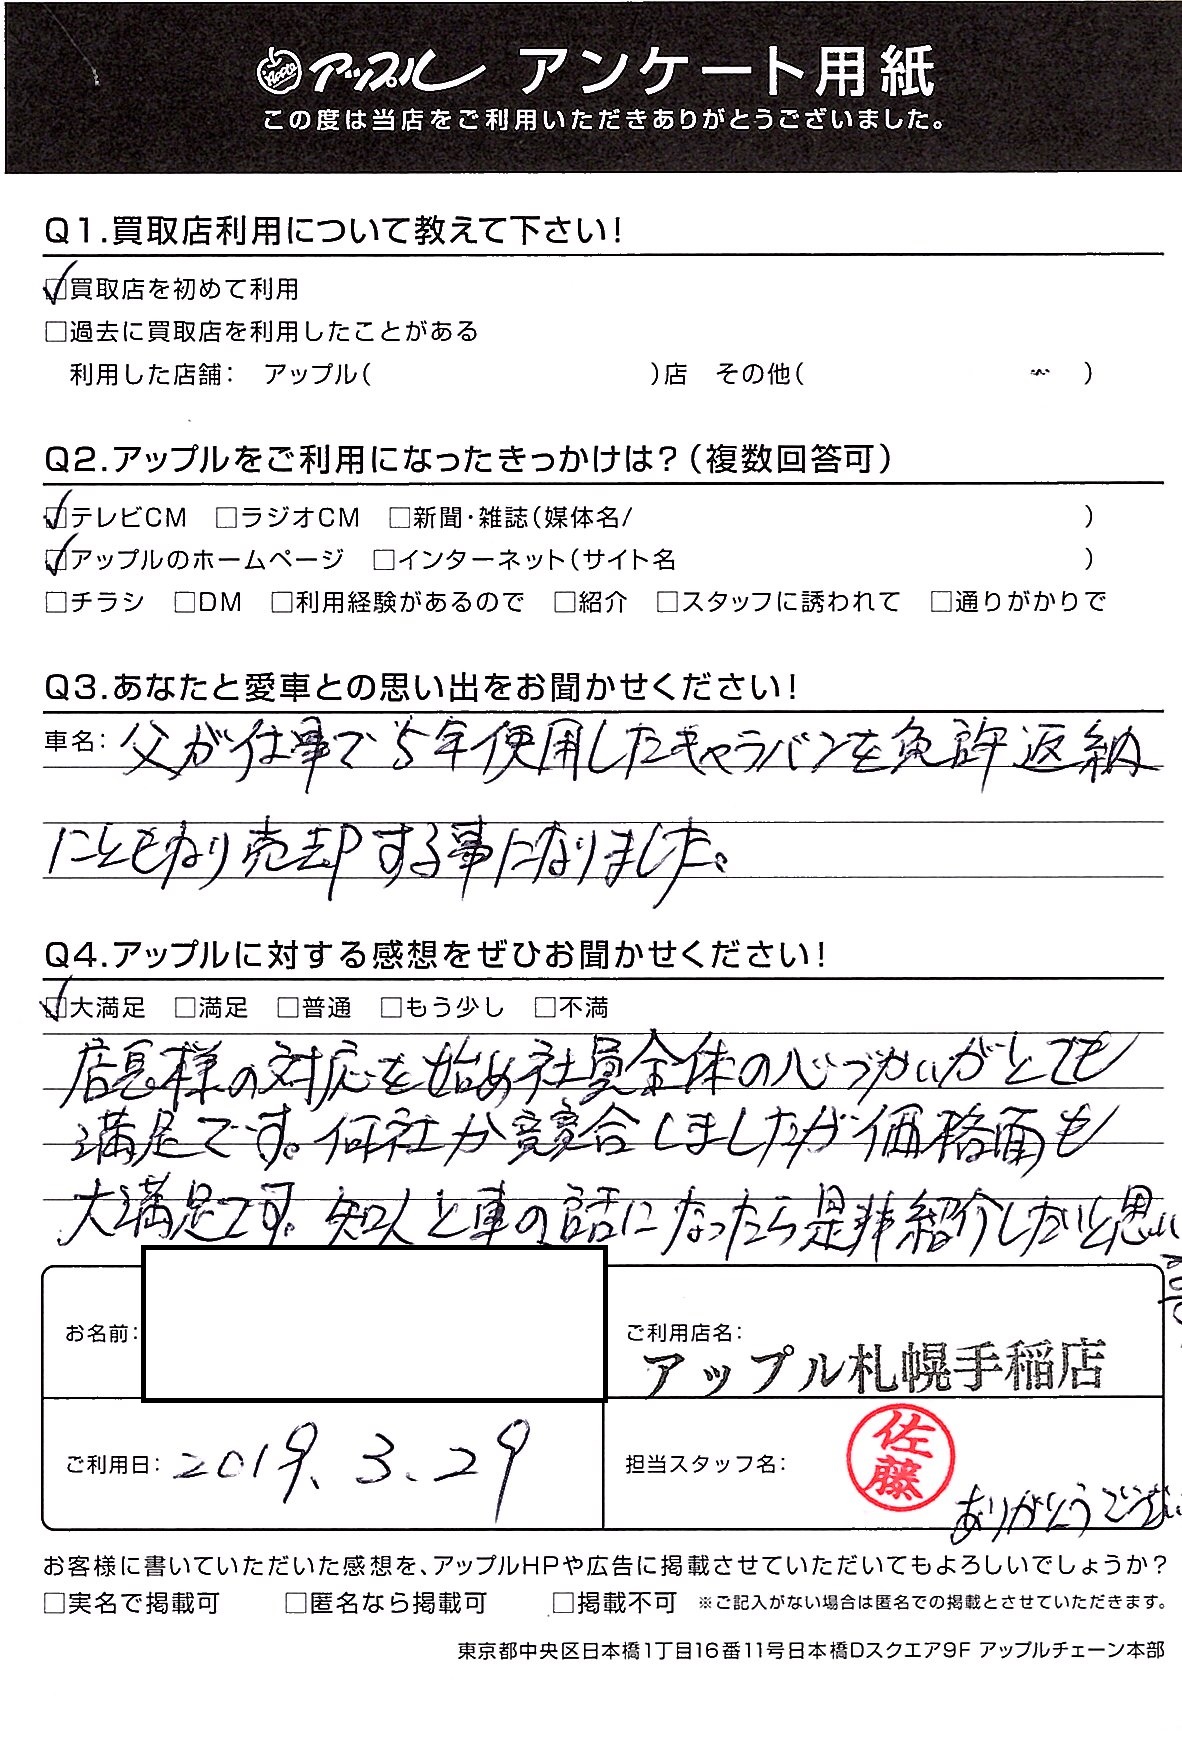 Apple アップル アンケート用紙
この度は当店をご利用いただきありがとうございました。
Q1.買取店利用について教えて下さい!
☑買取店を初めて利用
□過去に買取店を利用したことがある
利用した店舗: アップル( )店 その他( )
Q2.アップルをご利用になったきっかけは?(複数回答可)
☑テレビCM □ラジオCM □新聞・雑誌(媒体名/ )
☑アップルのホームページ □インターネット(サイト名 )
□チラシ □DM □利用経験があるので □紹介 □スタッフに誘われて □通りがかりで
Q3.あなたと愛車との思い出をお聞かせください!
車名: 父が仕事で5年使用したキャラバンを免許返納
にともない売却する事になりました。
Q4.アップルに対する感想をぜひお聞かせください!
☑大満足 □満足 □普通 □もう少し □不満
店長様の対応を始め社員全体の心づかいがとても
満足です。何社か競合しましたが価格面も
大満足です。知人と車の話になったら是非紹介したいと思い
お名前:
ご利用店名:
アップル札幌手稲店
ご利用日: 2019.3.29
担当スタッフ名: 佐藤
ありがとうござい
お客様に書いていただいた感想を、アップルHPや広告に掲載させていただいてもよろしいでしょうか?
□実名で掲載可 □匿名なら掲載可 □掲載不可 ※ご記入がない場合は匿名での掲載とさせていただきます。
東京都中央区日本橋1丁目16番11号日本橋Dスクエア9F アップルチェーン本部